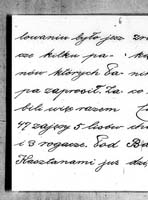 6
lowaniu było jesz
cze kilku pa-
nów których Ea-
pa zaprosił. Za co
bili więc razem
47 zajęcy 5 lisów
i 3 rogacze. Pod
Kasztanami już